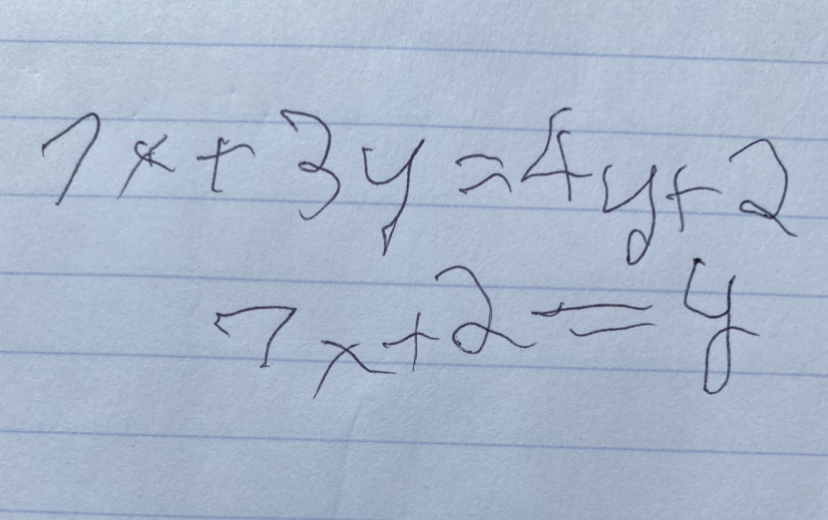 7x+3y=4y+2
7x+2=y